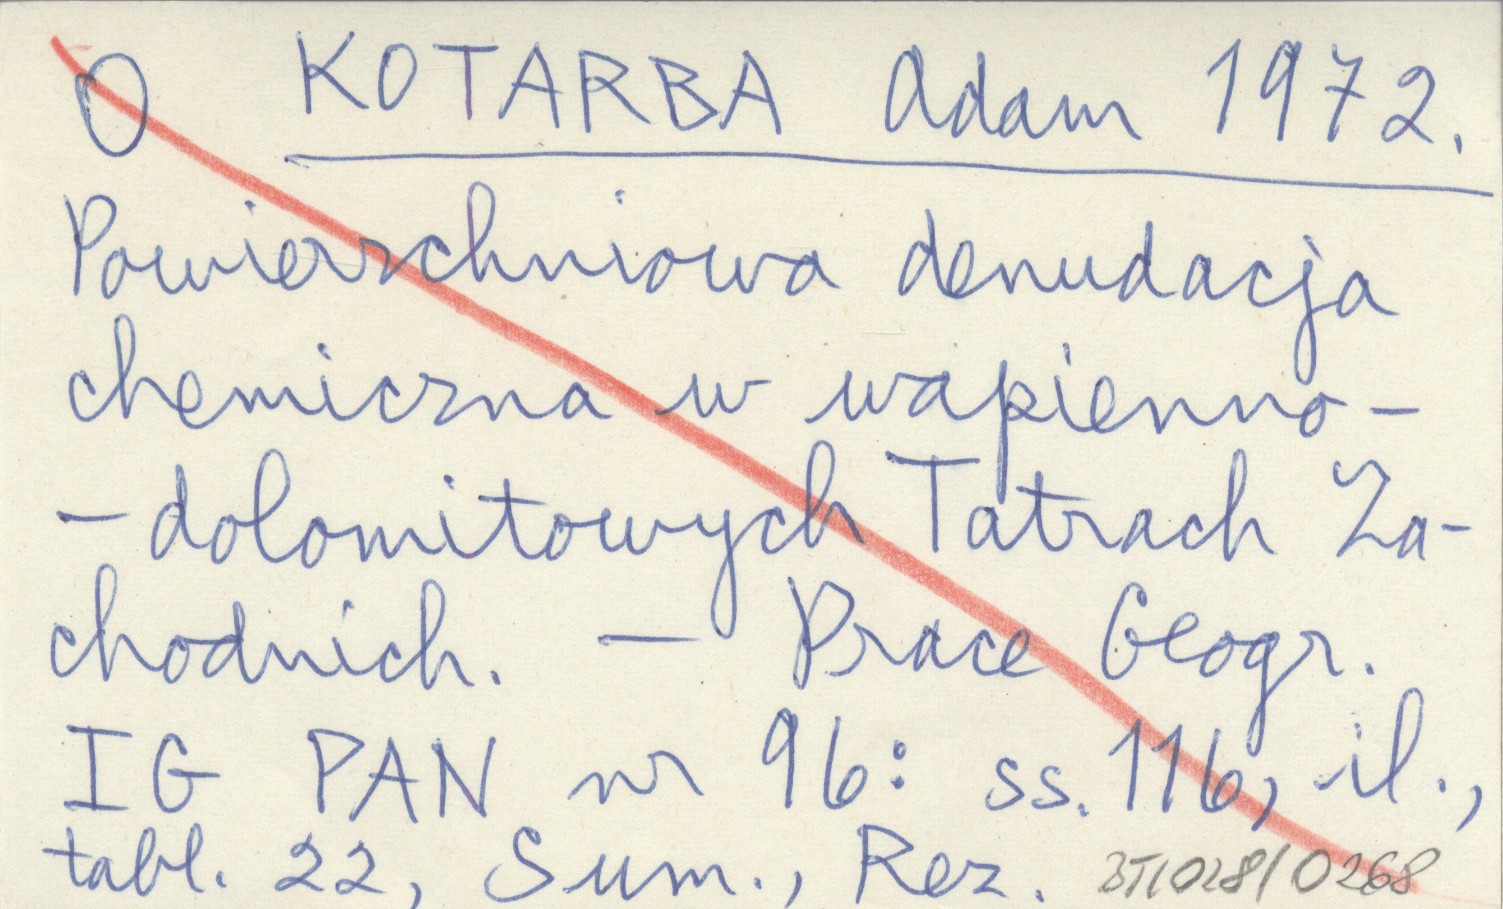 O KOTARBA Adam 1972.
Powierzchniowa denudacja
chemiczna w wapienno-
-dolomitowych Tatrach Za-
chodnich. — Prace Geogr.
IG PAN nr 96: ss. 116, il.,
tabl. 22, Sum., Rez.
BT/028/0268